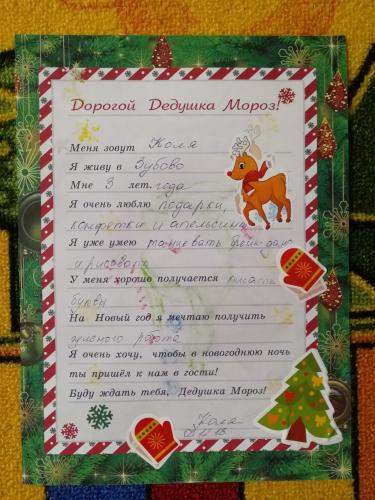 Дорогой Дедушка Мороз!
Меня зовут Коля
Я живу в Зубово
Мне 3 лет. года
Я очень люблю подарки,
конфетки и апельсины
Я уже умею танцевать брейк-данс
и рисовать
У меня хорошо получается писать
буквы
На Новый год я мечтаю получить
зеленого робота
Я очень хочу, чтобы в новогоднюю ночь
ты пришёл к нам в гости!
Буду ждать тебя, Дедушка Мороз!
Коля